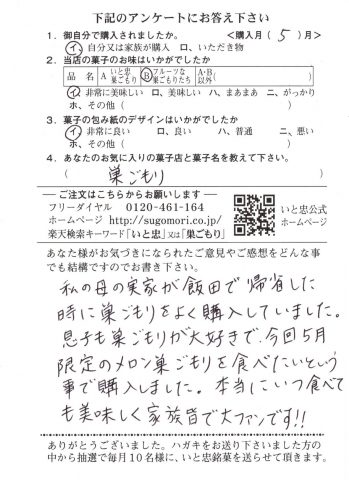 下記のアンケートにお答え下さい
1. 御自分で購入されましたか。 <購入月( 5 )月>
イ、自分又は家族が購入 ロ、いただき物
2. 当店の菓子のお味はいかがでしたか
品 名 A いと忠巣ごもり B フルーツな巣ごもりたち A・B以外( )
イ、非常に美味しい ロ、美味しい ハ、まあまあ ニ、がっかり
ホ、その他( )
3. 菓子の包み紙のデザインはいかがでしたか
イ、非常に良い ロ、良い ハ、普通 ニ、悪い
ホ、その他( )
4. あなたのお気に入りの菓子店と菓子名を教えて下さい。
( 巣ごもり )
─ ご注文はこちらからお願いします ─
フリーダイヤル 0120-461-164
ホームページ http://sugomori.co.jp/
楽天検索キーワード「いと忠」又は「巣ごもり」
いと忠公式
ホームページ
あなた様がお気づきになられたご意見やご感想をどんな事
でも結構ですのでお書き下さい。
私の母の実家が飯田で帰省した
時に巣ごもりをよく購入していました。
息子も巣ごもりが大好きで、今回5月
限定のメロン巣ごもりを食べたいという
事で購入しました。本当にいつ食べて
も美味しく家族皆で大ファンです!!
ありがとうございました。ハガキをお送り下さいました方の
中から抽選で毎月10名様に、いと忠銘菓を送らせて頂きます。